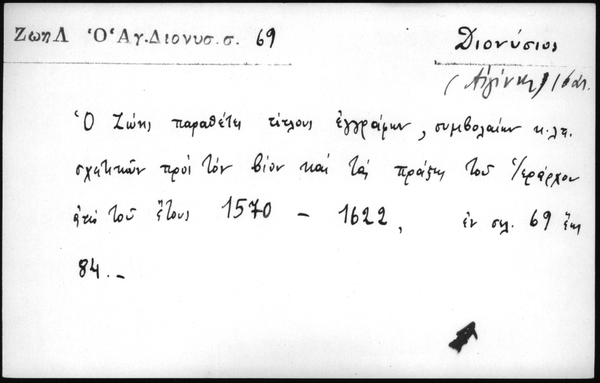 Ζώη Λ Ὁ Ἅγ. Διονυσ. σ. 69
Διονύσιος
(Αἰγίνης)
Ὁ Ζώης παραθέτει τίτλους ἐγγράφων, συμβολαίων κ.λπ.
σχετικῶν πρὸς τὸν βίον καὶ τὰς πράξεις τοῦ Ἱεράρχου
ἀπὸ τοῦ ἔτους 1570 - 1622, ἐν σελ. 69 ἕως
84.-